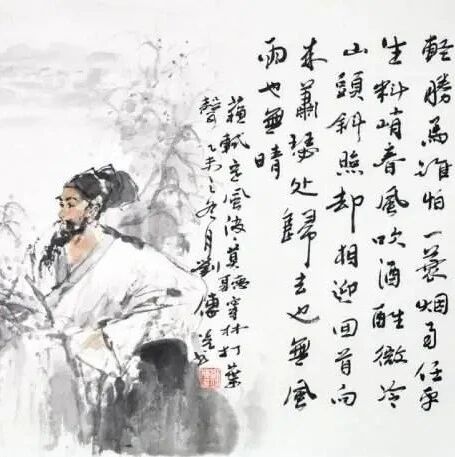 輕勝馬誰怕一蓑烟雨任平
生料峭春風吹酒醒微冷
山頭斜照却相迎回首向
来蕭瑟處歸去也無風
雨也無晴
蘇軾定風波莫聽穿林打葉
聲乙未之冬月劉傳